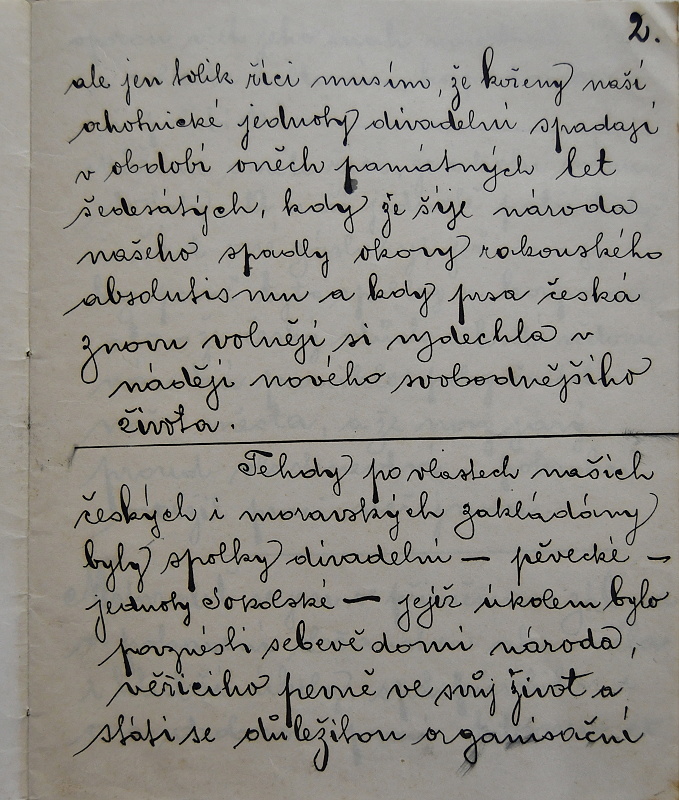 2.
ale jen tolik říci musím, že kořeny naší
ochotnické jednoty divadelní spadají
v období oněch památných let
šedesátých, kdy že šíje národa
našeho spadly okovy rakouského
absolutismu a kdy prsa česká
znovu volněji si vydechla v
náději nového svobodnějšího
života.
Tehdy po vlastech našich
českých i moravských zakládány
byly spolky divadelní — pěvecké —
jednoty Sokolské — jejíž úkolem bylo
povznésti sebevědomí národa,
věřícího pevně ve svůj život a
státi se důležitou organisační